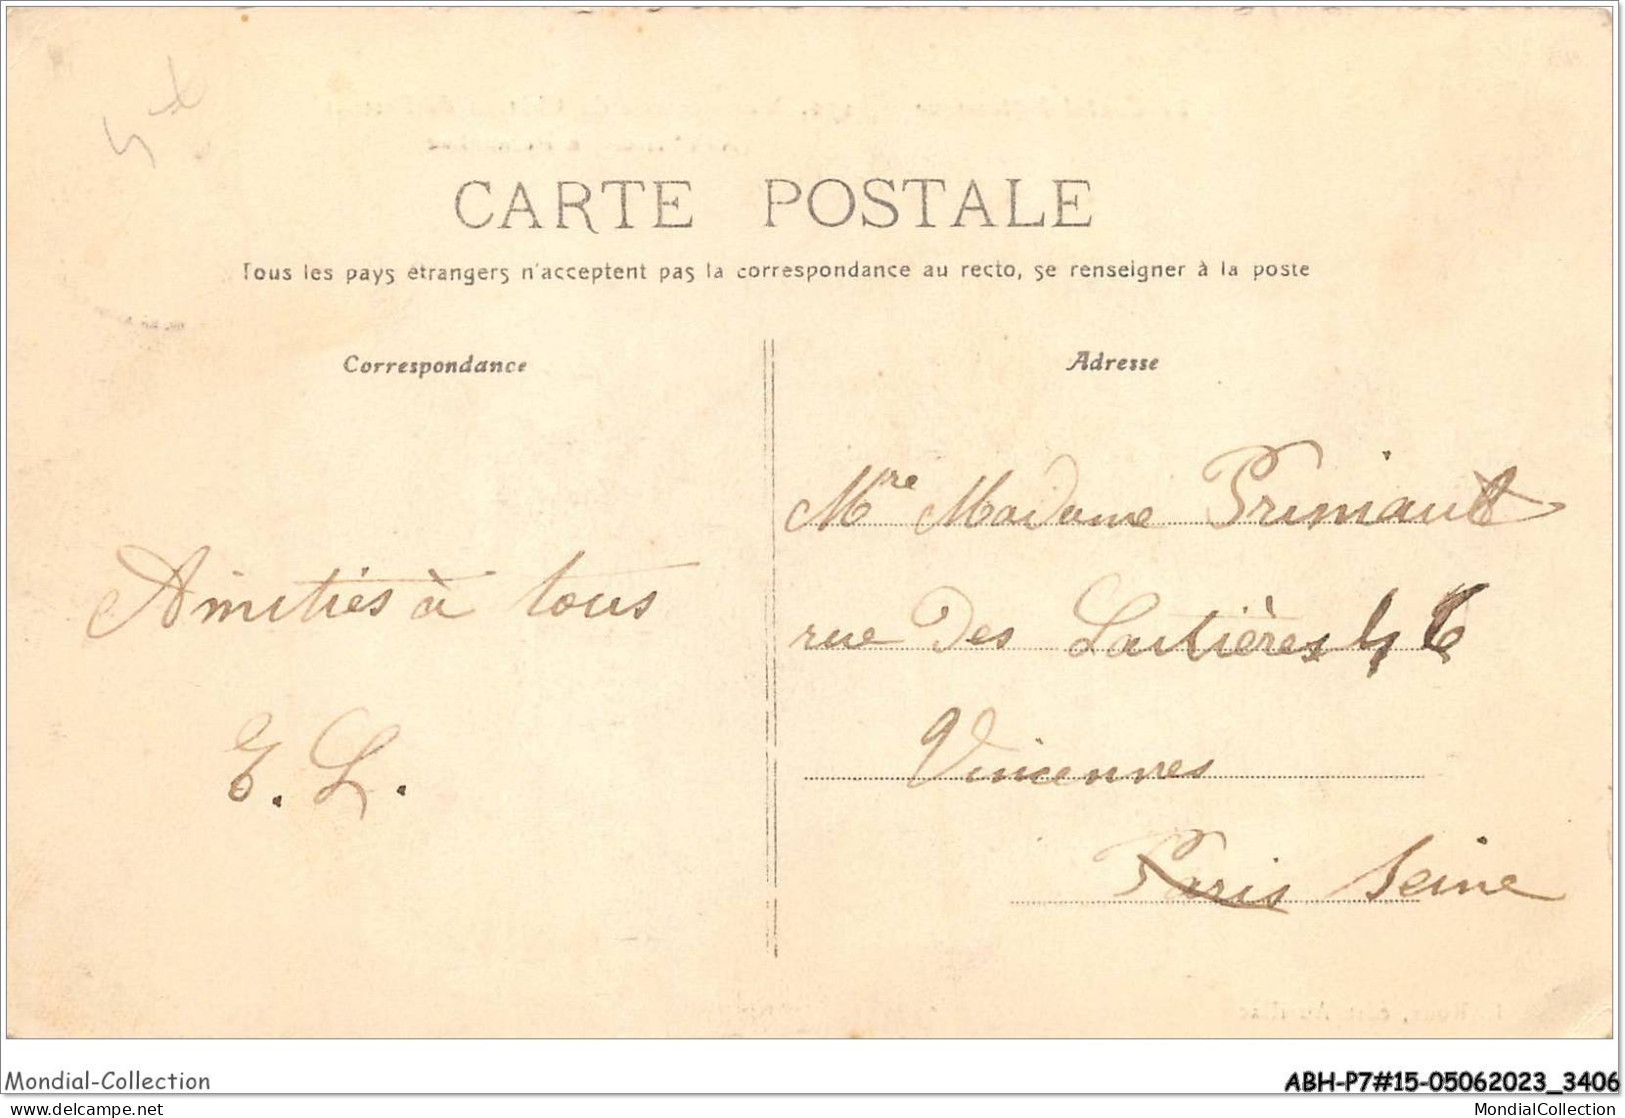 CARTE POSTALE
Tous les pays étrangers n'acceptent pas la correspondance au recto, se renseigner à la poste
Correspondance
Adresse
Amitiés à tous
E. L.
Mre Madame Primault
rue Des Laitières 46
Vincennes
Paris Seine
Mondial-Collection
ABH-P7#15-05062023_3406
www.delcampe.net
MondialCollection